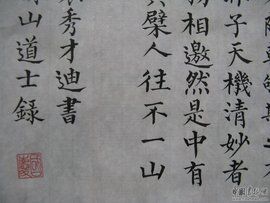 子天機清妙者
務相邀然是中有
黃檗人往不一山
秀才迪書
山道士錄